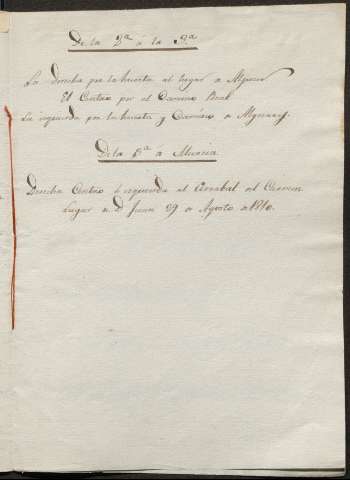 De la 2ª á la 3ª
La derecha por la huerta al lugar de
El Centro por el Camino Real
La izquierda por la huerta y Camino de
De la 3ª á Murcia
Derecha Centro é izquierda al Arrabal del Carmen
Lugar de Dn Juan 29 de Agosto de 1810.